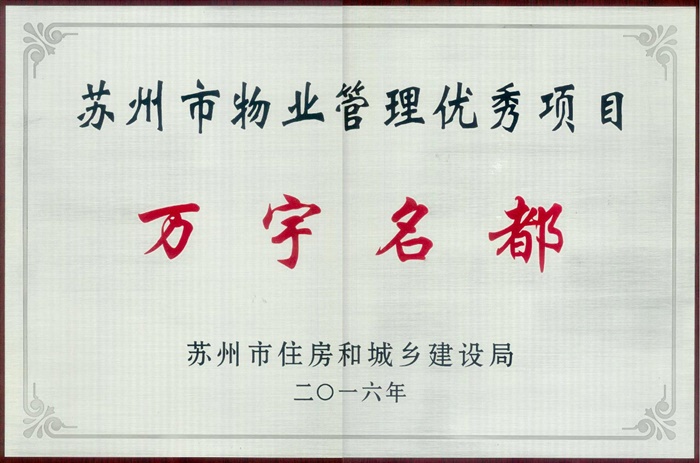 苏州市物业管理优秀项目
万宇名都
苏州市住房和城乡建设局
二〇一六年